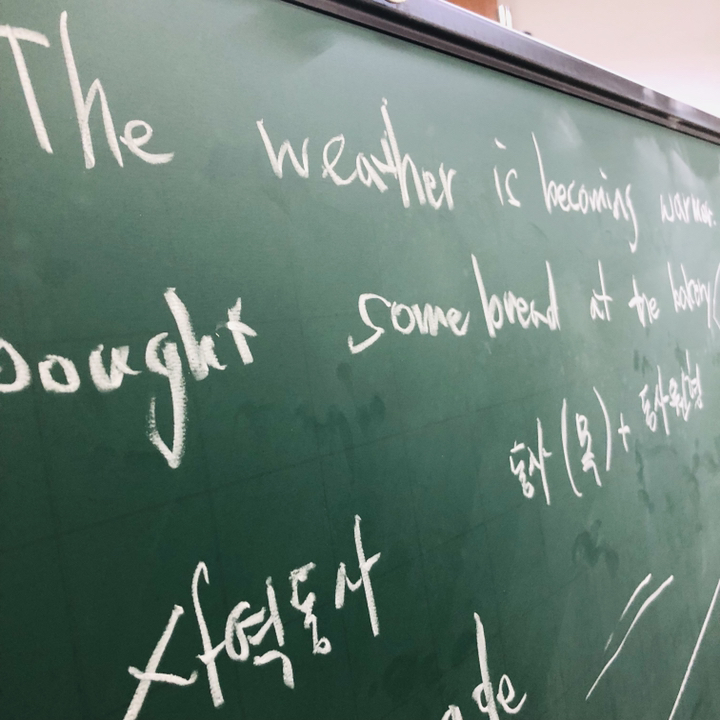 The weather is becoming warmer.
bought some bread at the bakery
동사 (목) + 동사원형
사역동사